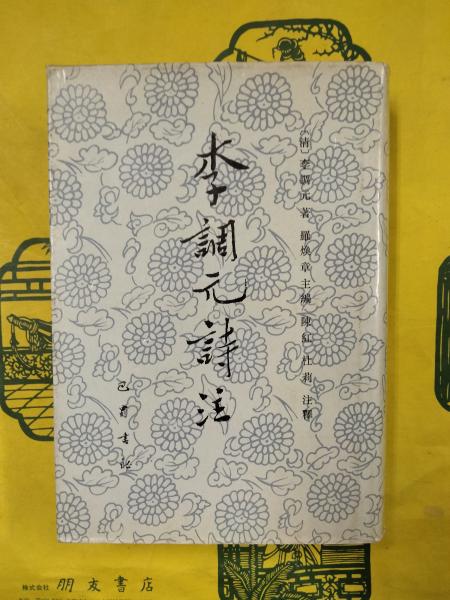 〔清〕李調元 著 羅煥章 主編 陳紅 杜莉 注釋
李調元詩注
巴蜀書社
株式会社 朋友書店